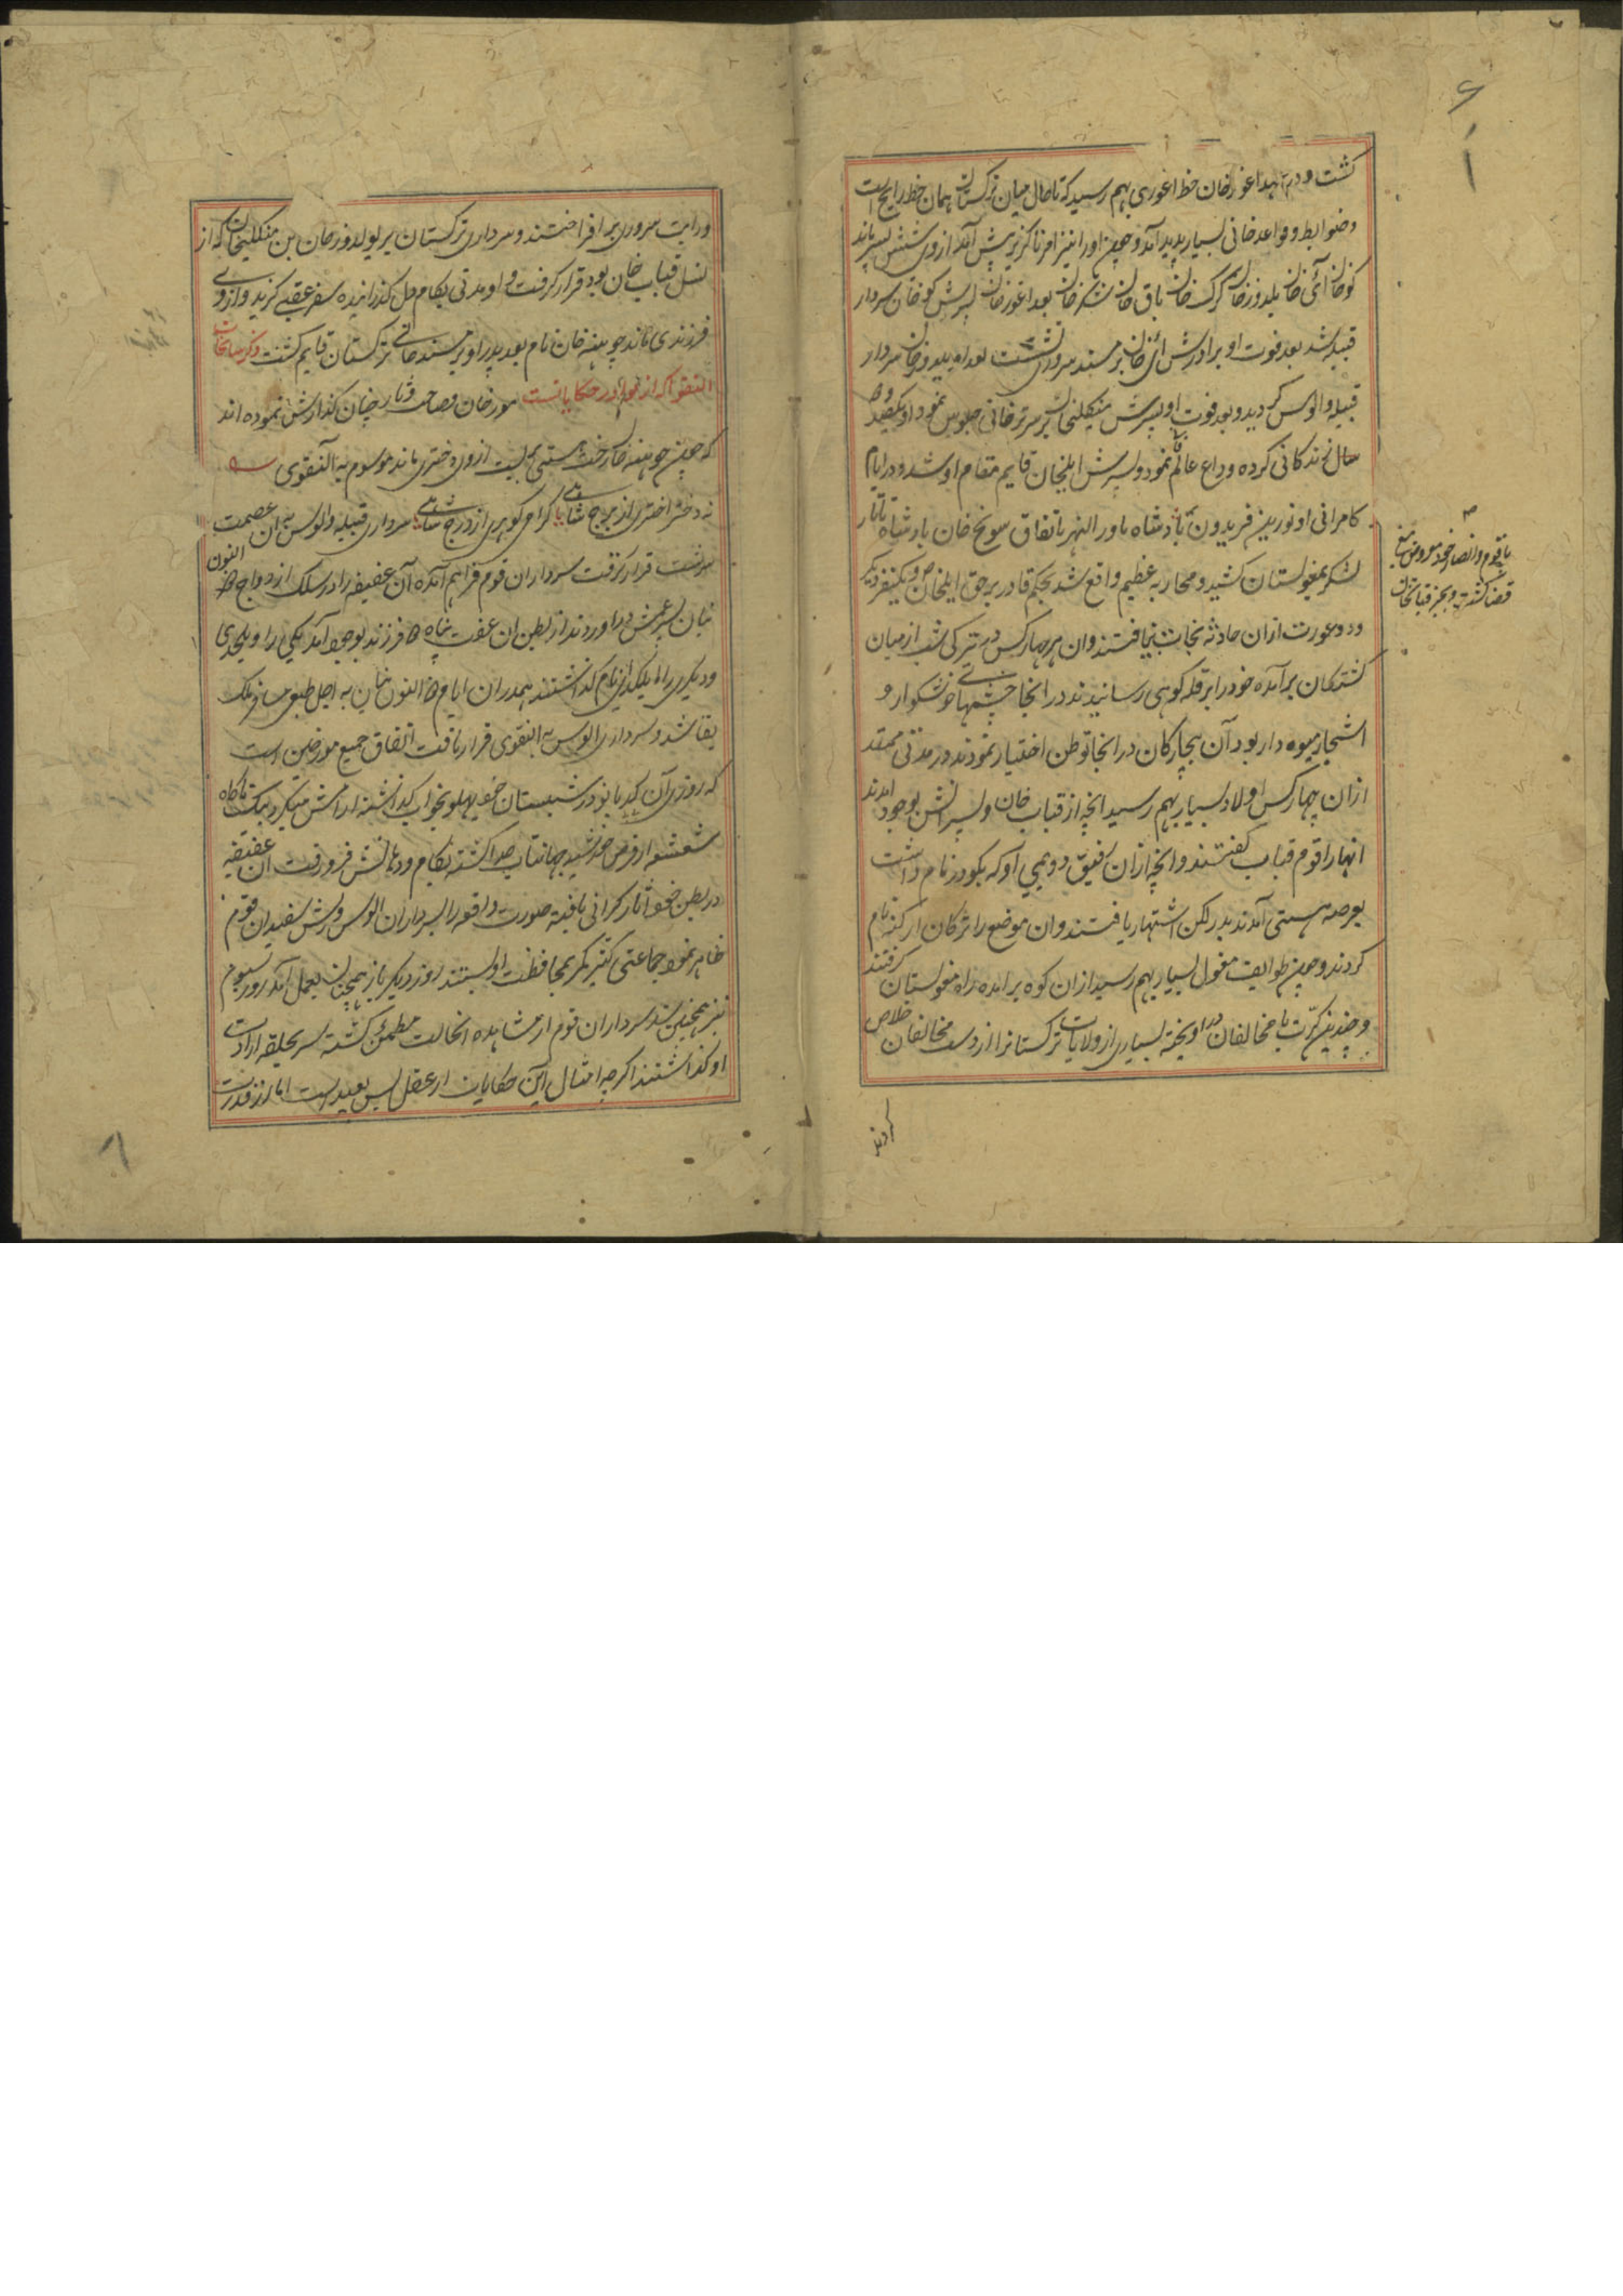 ۶
۱
گشت و در عهد اغورخان خط اغوری بهم رسید که تا حال میان ترکستان همان خط رایج است
و ضوابط و قواعد خانی بسیار پدید آمد و چون او را نیز امر ناگزیر پیش آمد از وی شش پسر ماند
کوخان آئی خان یلدوز خان کرک خان تاق خان تنگز خان بعد اغورخان پسرش کوخان سردار
قبیله شد بعد فوت او برادرش آئی خان بر مسند سروری نشست بعد او یلدوزخان سردار
قبیله و الوس گردید و بعد فوت او پسرش منگلیخان بر سریر خانی جلوس نمود او یکصد و ده
سال زندگانی کرده وداع عالم فانی نمود و پسرش ایلخان قایم مقام او شد و در ایام
کامرانی او تور بن فریدون بادشاه ماورالنهر باتفاق سونج خان بادشاه تاتار
لشکر بمغولستان کشید و محاربه عظیم واقع شد بحکم قادر برحق ایلخان و یکنفر دیگر
و دو عورت ازان حادثه نجات نیافتند و ان هر چهار کس در تیرگی شب از میان
کشتگان برآمده خود را بر قله کوهی رسانیدند در انجا چشمهای خوشگوار و
اشجار میوه دار بود آن بیچارگان در انجا توطن اختیار نمودند در مدتی ممتد
ازان چهار کس اولاد بسیار بهم رسید انچه از قباب خان و پسرانش بوجود آمدند
انها را قوم قباب گفتند و انچه ازان رفیق دویمی او که بکودر نام داشت
بعرصه هستی آمدند بدرلکن اشتهار یافتند و ان موضع را ترکان ارکنه نام
کردند و چون طوایف مغول بسیار بهم رسید ازان کوه برآمده راه مغولستان گرفتند
و چندین کرّت با مخالفان در آویخته بسیاری از ولایات ترکستانرا از دست مخالفان خلاص
کردند
با قوم و انصار خود
قضا گشت و بجز قباخان
و رایت سروری برافراختند و سرداری ترکستان بر یولدوزخان بن منگلیخان که از
نسل قباب خان بود قرار گرفت و او مدتی بکام دل گذرانیده سفر عقبی گزید و از وی
فرزندی ماند جوبینه خان نام بعد پدر او بر مسند خانی ترکستان قایم گشت ذکر
النقوا که از نوادر حکایاتست مورخان فصاحت دثار چنان گذارش نموده اند
که چون جوبینه خان رخت هستی بربست از وی دختری ماند موسوم به النقوی
نه دختر اختری از برج شاهی گرامی گوهری از درج شاهی سرداری قبیله و الوس به ان عصمت
سرشت قرار گرفت سرداران قوم فراهم آمده آن عفیفه را در سلک ازدواج
بیان پسر عمش در آوردند از بطن ان عفت پناه دو فرزند بوجود آمد یکی را ویلجدی
و دیگری را بایلکدای نام گذاشتند بهمدران ایام
بقا شد و سرداری الوس به النقوی قرار یافت اتفاق جمیع مورخین است
که روزی آن کدبانو در شبستان خود پهلو بخواب گذاشته آرامش میکرد که ناگاه
شعشعه از قرص خورشید جهانتاب جدا گشته بکام و دهانش فرو رفت ان عفیفه
در بطن خود آثار گرانی یافته صورت واقعه را بسرداران الوس و ریش سفیدان قوم
ظاهر نمود جماعتی کثیر کمر بمحافظت او بستند روز دیگر باز همچنان بعمل آمد روز سیوم
نیز همچنین شد سرداران قوم از مشاهده انحالت مطمئن گشته سر بحلقه ارادت
او گذاشتند اگرچه امثال این حکایات از عقل بس بعید است اما از قدرت